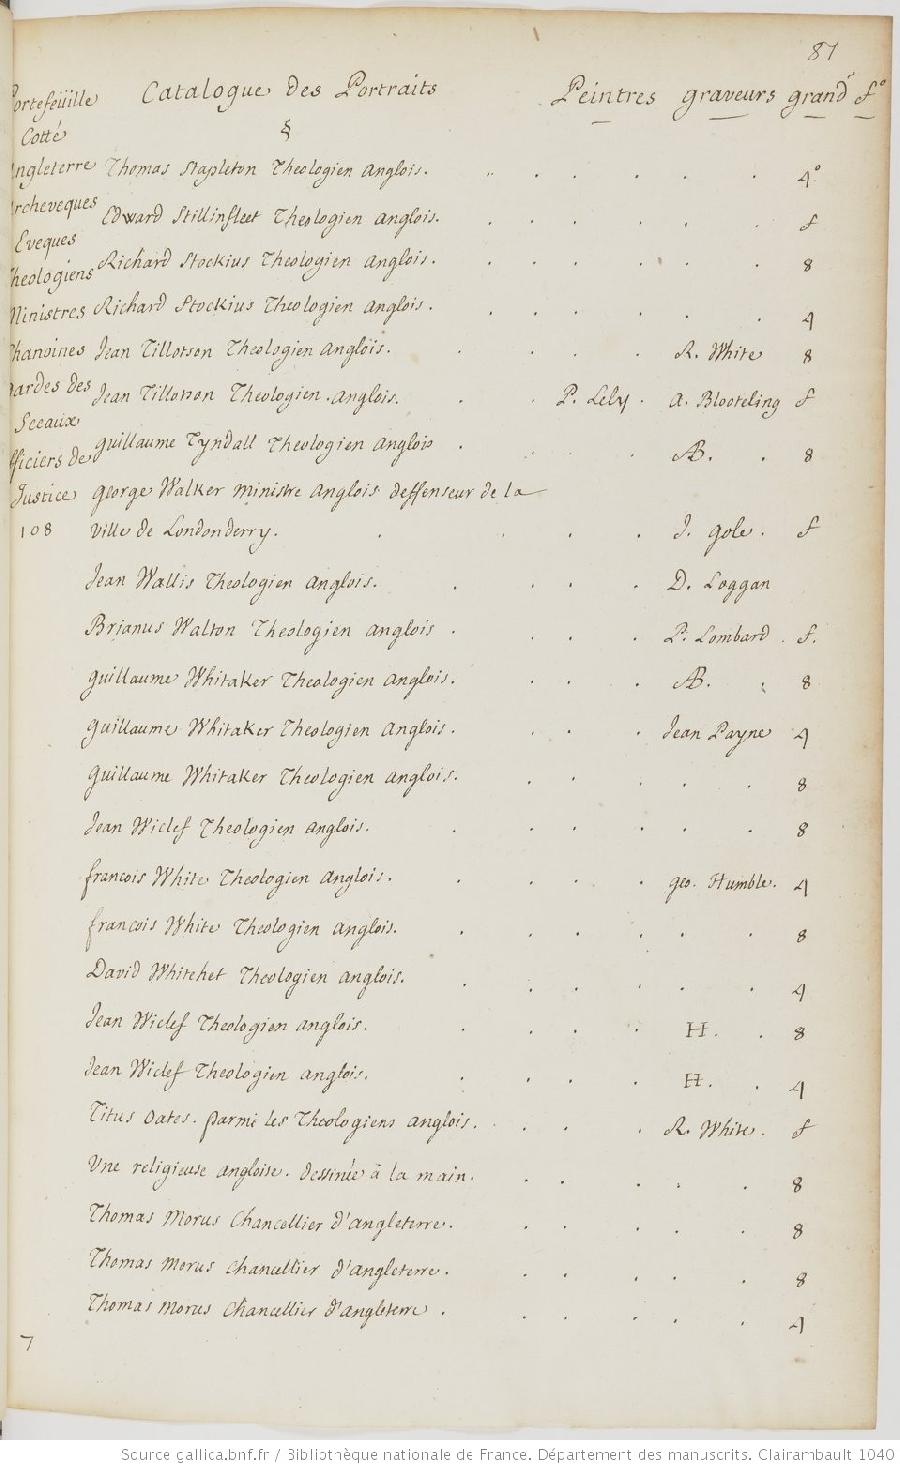 87
Catalogue des Portraits
Peintres graveurs grand f°
§
Portefeüille
Cotté
Angleterre
Archeveques
Eveques
Theologiens
Ministres
Chanoines
gardes des
Sceaux
officiers de
Justice
108
Thomas Stapleton Theologien anglois. 4°
Edward Stillinfleet Theologien anglois. f
Richard Stockius Theologien anglois. 8
Richard Stockius Theologien anglois. 4
Jean Tillotson Theologien anglois. R. White 8
Jean Tillotson Theologien anglois. P. Lely. A. Blooteling f
guillaume Tyndall Theologien anglois. AB. 8
george Walker ministre anglois deffenseur de la
ville de Londonderry. J. gole. f
Jean Wallis Theologien anglois. D. Loggan
Brianus Walton Theologien anglois. P. Lombard. f.
guillaume Whitaker Theologien anglois. AB. 8
guillaume Whitaker Theologien anglois. Jean Payne 4
guillaume Whitaker Theologien anglois. 8
Jean Wiclef Theologien anglois. 8
francois White Theologien anglois. geo. Humble. 4
francois White Theologien anglois. 8
David Whitehet Theologien anglois. 4
Jean Wiclef Theologien anglois. H. 8
Jean Wiclef Theologien anglois. H. 4
Titus oates. parmi les Theologiens anglois. R. White. f
Une religieuse angloise. dessinée à la main. 8
Thomas Morus Chancellier d'angleterre. 8
Thomas morus chancellier d'angleterre. 8
Thomas morus chancellier d'angleterre. 4
7
Source gallica.bnf.fr / Bibliothèque nationale de France. Département des manuscrits. Clairambault 1040